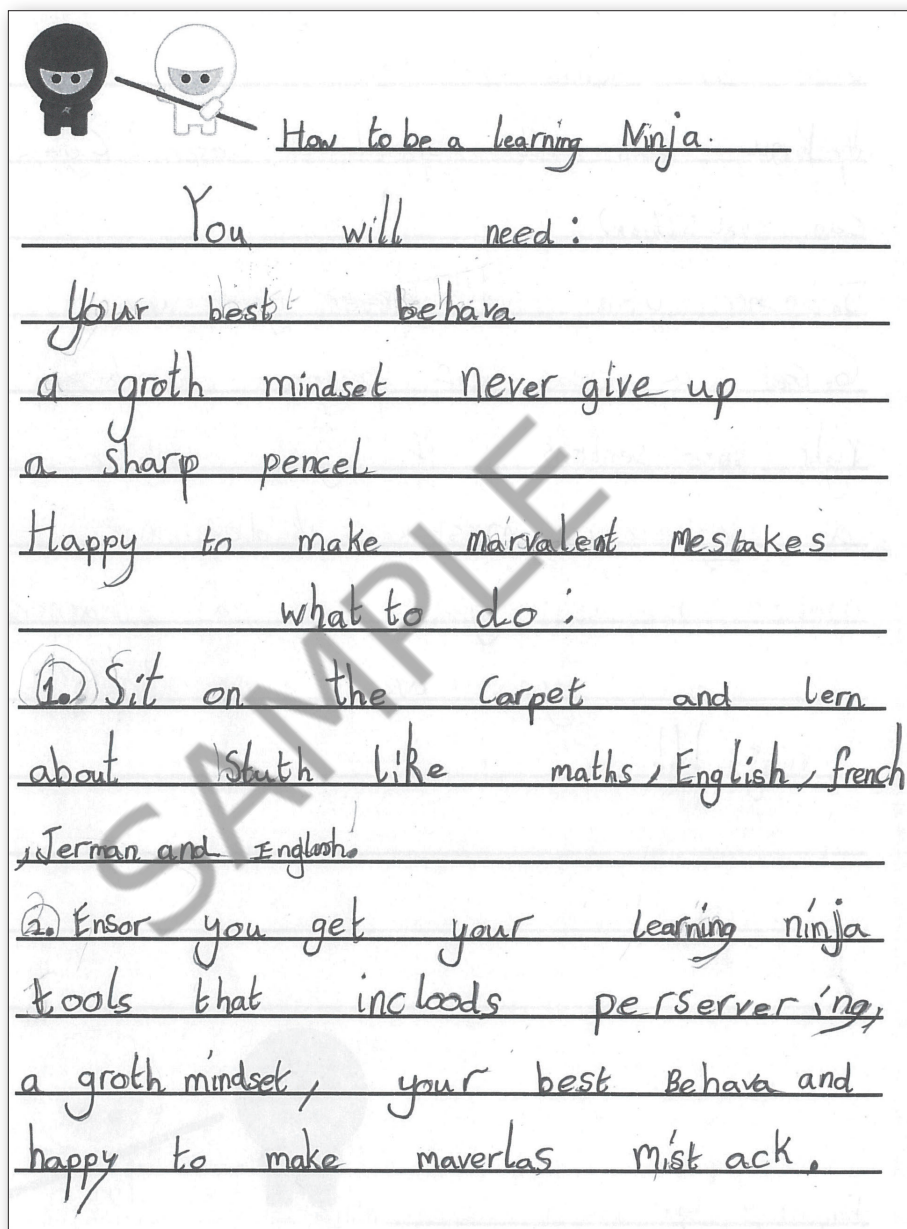 How to be a learning Ninja.
You will need:
Your best behava
a groth mindset never give up
a sharp pencel
Happy to make marvalent mestakes
what to do:
1. Sit on the Carpet and lern
about Stuth like maths, English, french
, Jerman and Engloosh.
2. Ensor you get your learning ninja
tools that incloods perservering,
a groth mindset, your best Behava and
happy to make maverlas mist ack.
SAMPLE